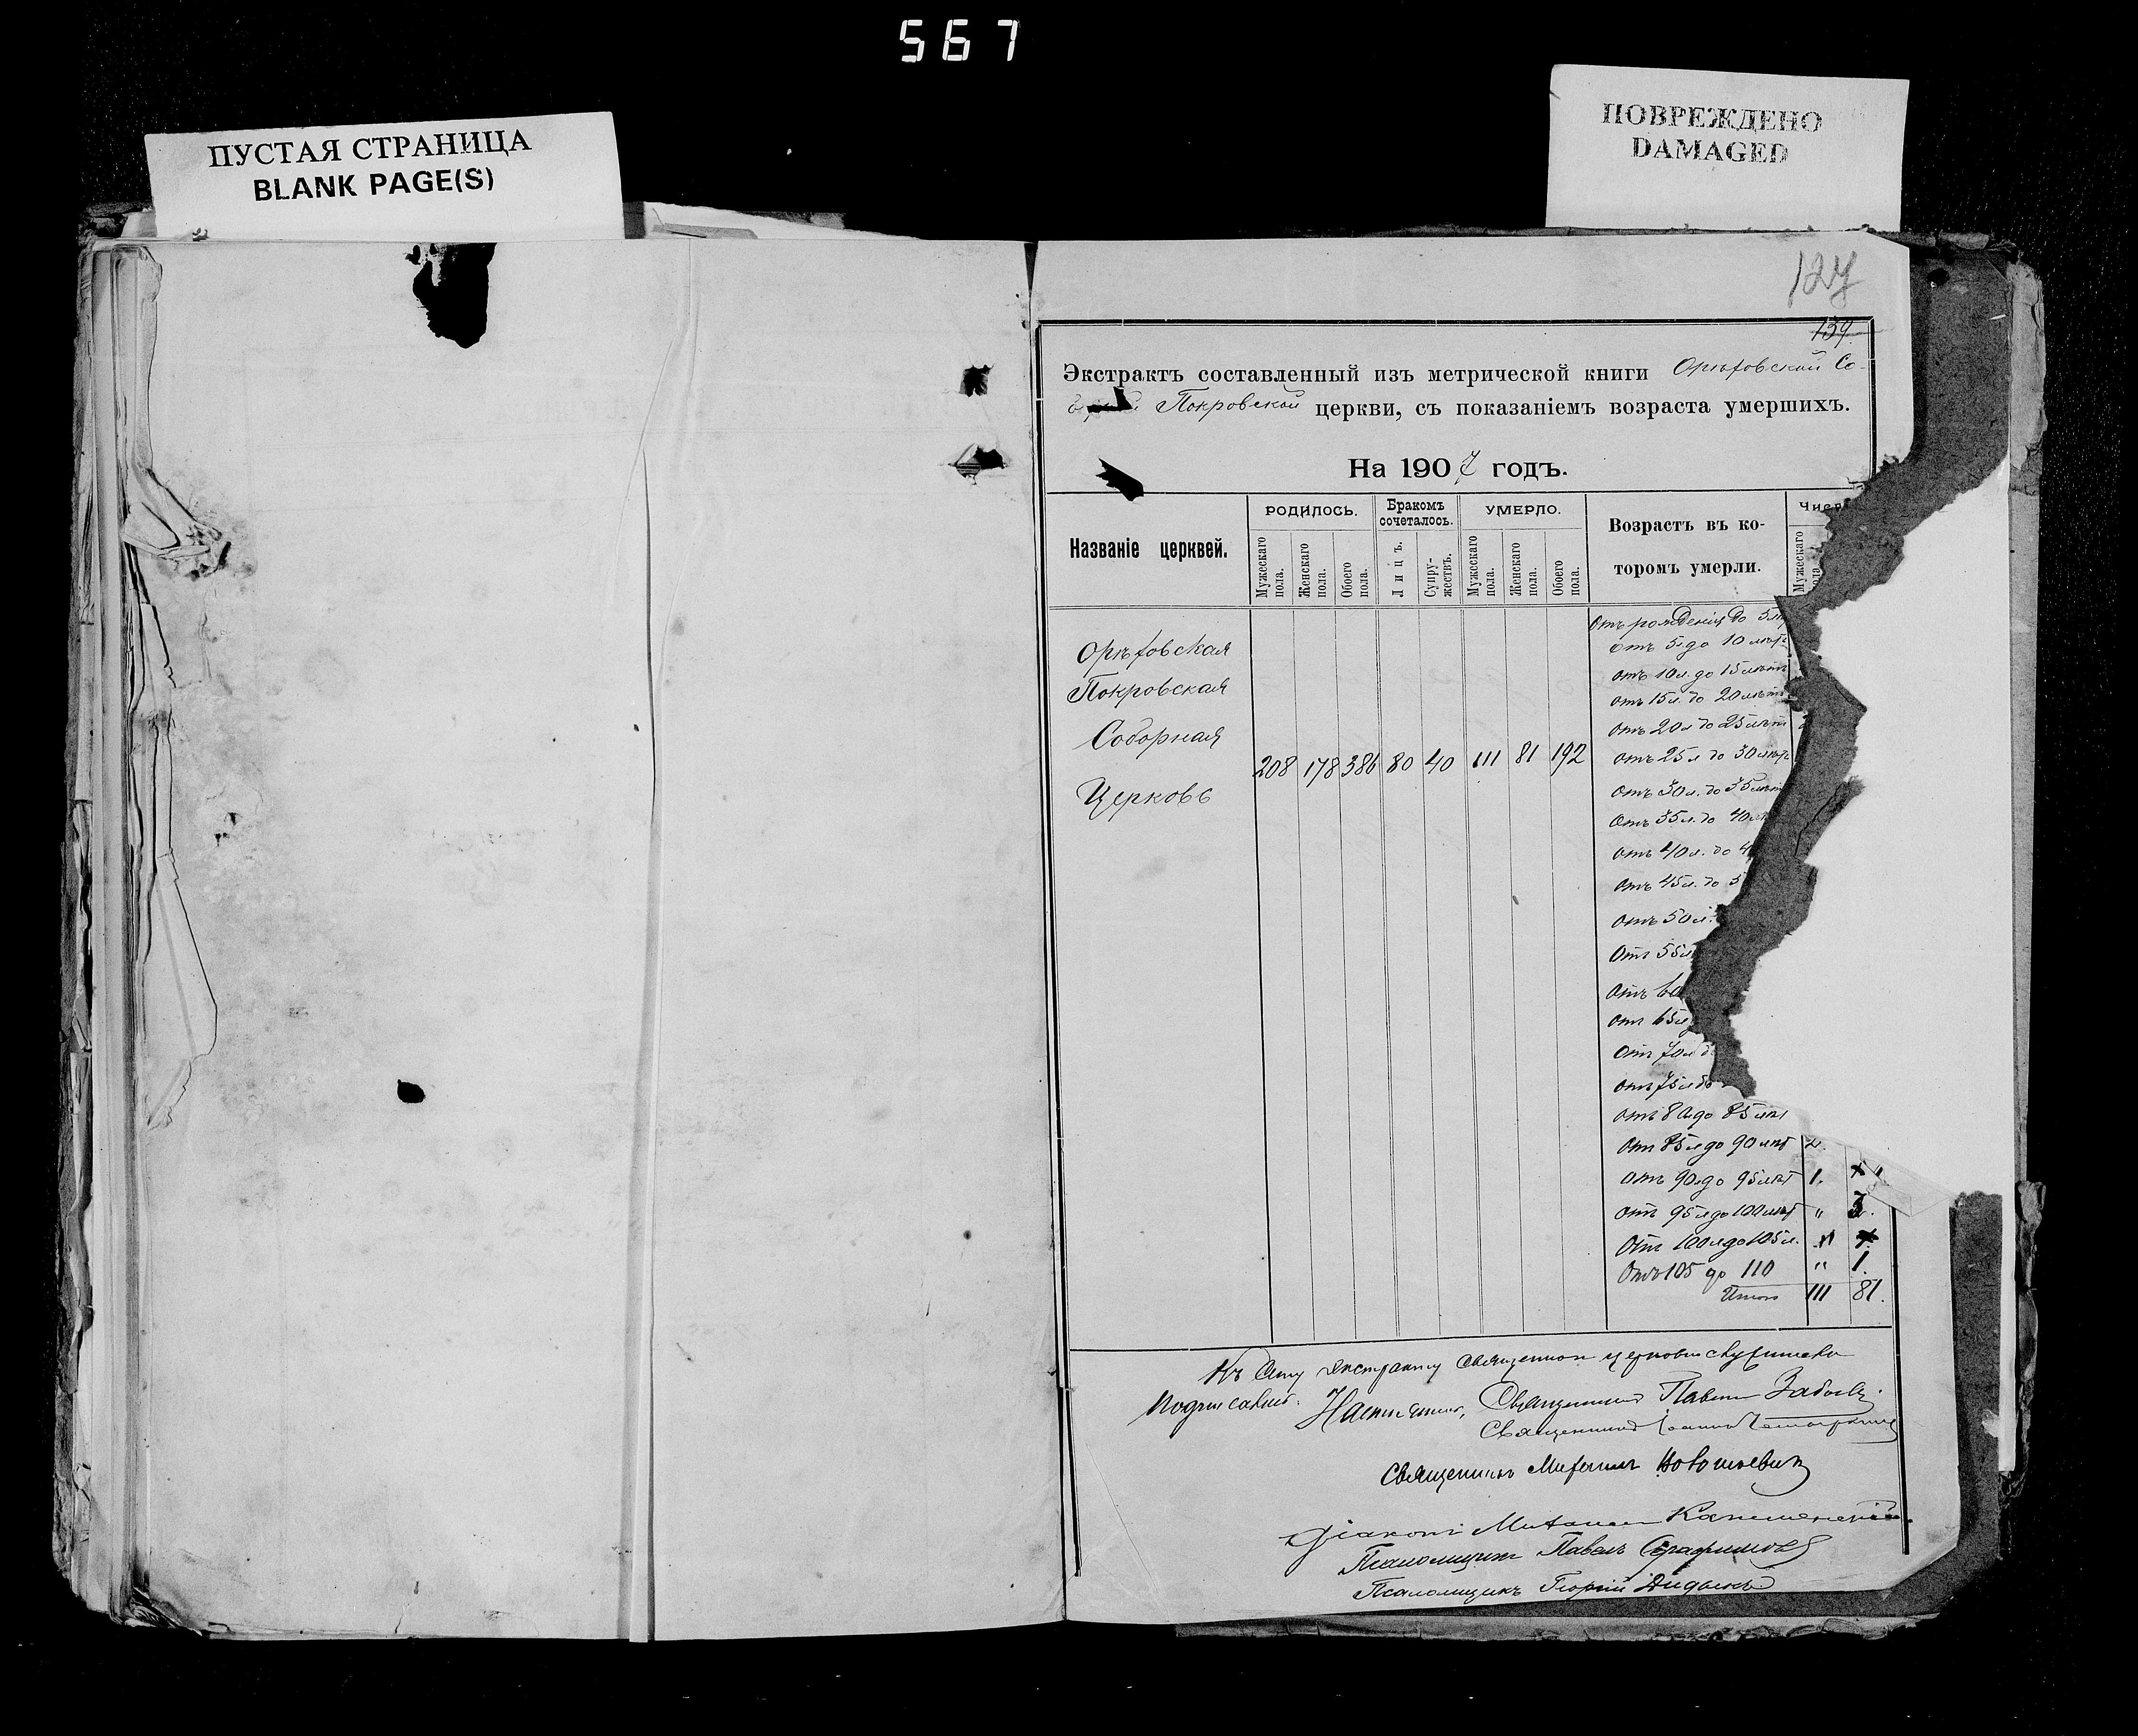 567
ПУСТАЯ СТРАНИЦА
BLANK PAGE(S)
ПОВРЕЖДЕНО
DAMAGED
127
139.
Экстрактъ составленный изъ метрической книги Орѣховской Со-
Покровской церкви, съ показаніемъ возраста умершихъ.
На 1907 годъ.
Названіе церквей.
РОДИЛОСЬ.
Мужескаго пола.
Женскаго пола.
Обоего пола.
Бракомъ сочеталось.
Лицъ.
Супружествъ.
УМЕРЛО.
Мужескаго пола.
Женскаго пола.
Обоего пола.
Возрастъ въ ко-
торомъ умерли.
Числ
Мужескаго пола
Орѣховская
Покровская
Соборная
Церковь
208 178 386 80 40 111 81 192
Отъ рожденія до 5 лѣ
отъ 5 до 10 лѣтъ
отъ 10 л. до 15 лѣтъ
отъ 15 л. до 20 лѣтъ
отъ 20 л до 25 лѣт
отъ 25 л до 30 лѣтъ
отъ 30 л. до 35 лѣт
Отъ 35 л. до 40 л
отъ 40 л. до 4
отъ 45 л. до 5
отъ 50 л.
Отъ 55 л
Отъ 60
Отъ 65 л
Отъ 70 л д
отъ 75 л до
отъ 80 л до 85 лѣт
Отъ 85 л до 90 лѣт 2.
Отъ 90 л до 95 лѣт 1.
отъ 95 л до 100 лѣт "
Отъ 100 л до 105 л.
Отъ 105 до 110 " 1.
Итого 111 81.
Къ сему экстракту священно церковно служители
подписались: Настоятель, Священникъ Павелъ
Священникъ Іоаннъ
Священникъ Михаилъ
Діаконъ Михаилъ
Псаломщикъ Павелъ Серафимовъ
Псаломщикъ Георгій Дидыкъ